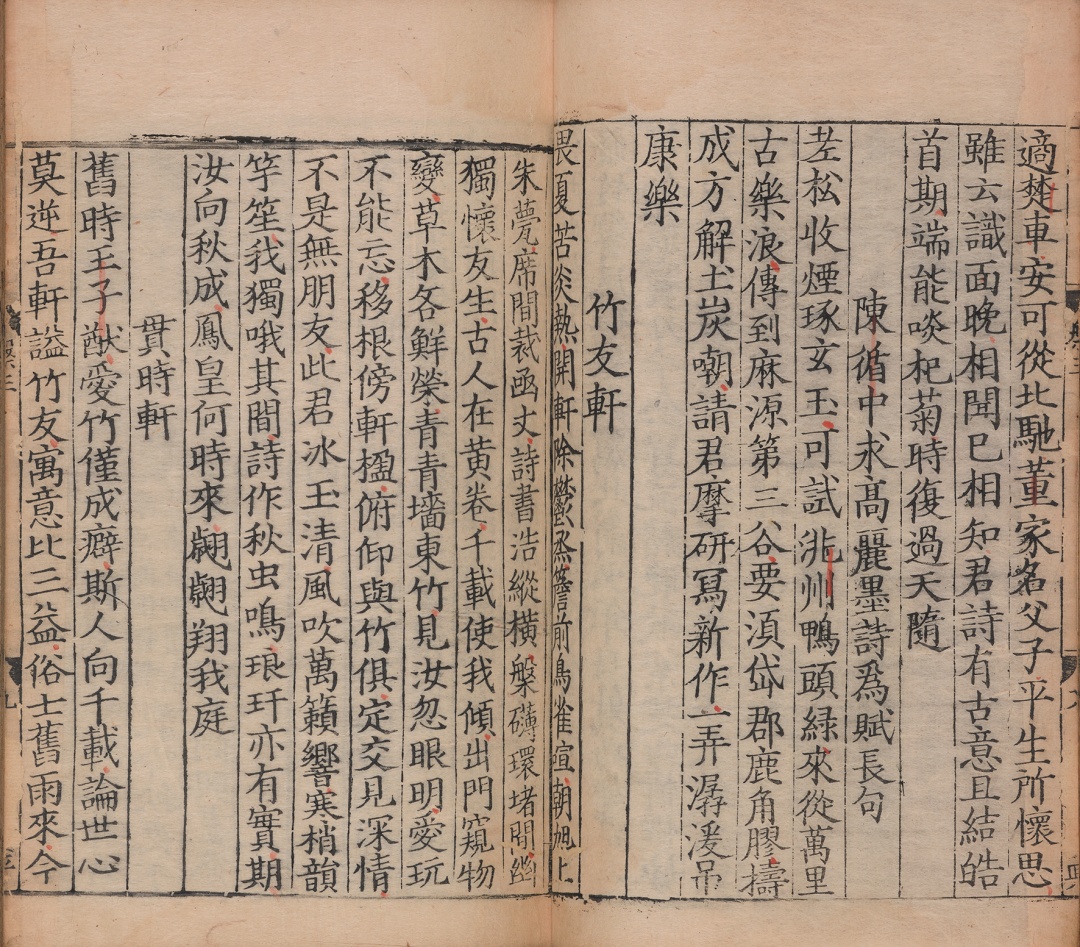 適楚車安可從北馳董家名父子平生所懷思
雖云識面晚相聞已相知君詩有古意且結皓
首期端能啖杞菊時復過天隨
陳循中求高麗墨詩爲賦長句
老松收煙琢玄玉可試洮州鴨頭綠來從萬里
古樂浪傳到麻源第三谷要須岱郡鹿角膠擣
成方解土炭嘲請君摩研冩新作一弄潺湲吊
康樂
竹友軒
畏夏苦炎熱開軒除鬱蒸簷前鳥雀喧朝旭上
朱甍席間裁函丈詩書浩縱橫槃礴環堵間幽
獨懷友生古人在黃卷千載使我傾出門窺物
變草木各鮮榮青青墻東竹見汝忽眼明愛玩
不能忘移根傍軒楹俯仰與竹俱定交見深情
不是無朋友此君冰玉清風吹萬籟響寒梢韻
竽笙我獨哦其間詩作秋虫鳴琅玕亦有實期
汝向秋成鳳皇何時來翩翩翔我庭
貫時軒
舊時王子猷愛竹僅成癖斯人向千載論世心
莫逆吾軒謚竹友寓意比三益俗士舊雨來今